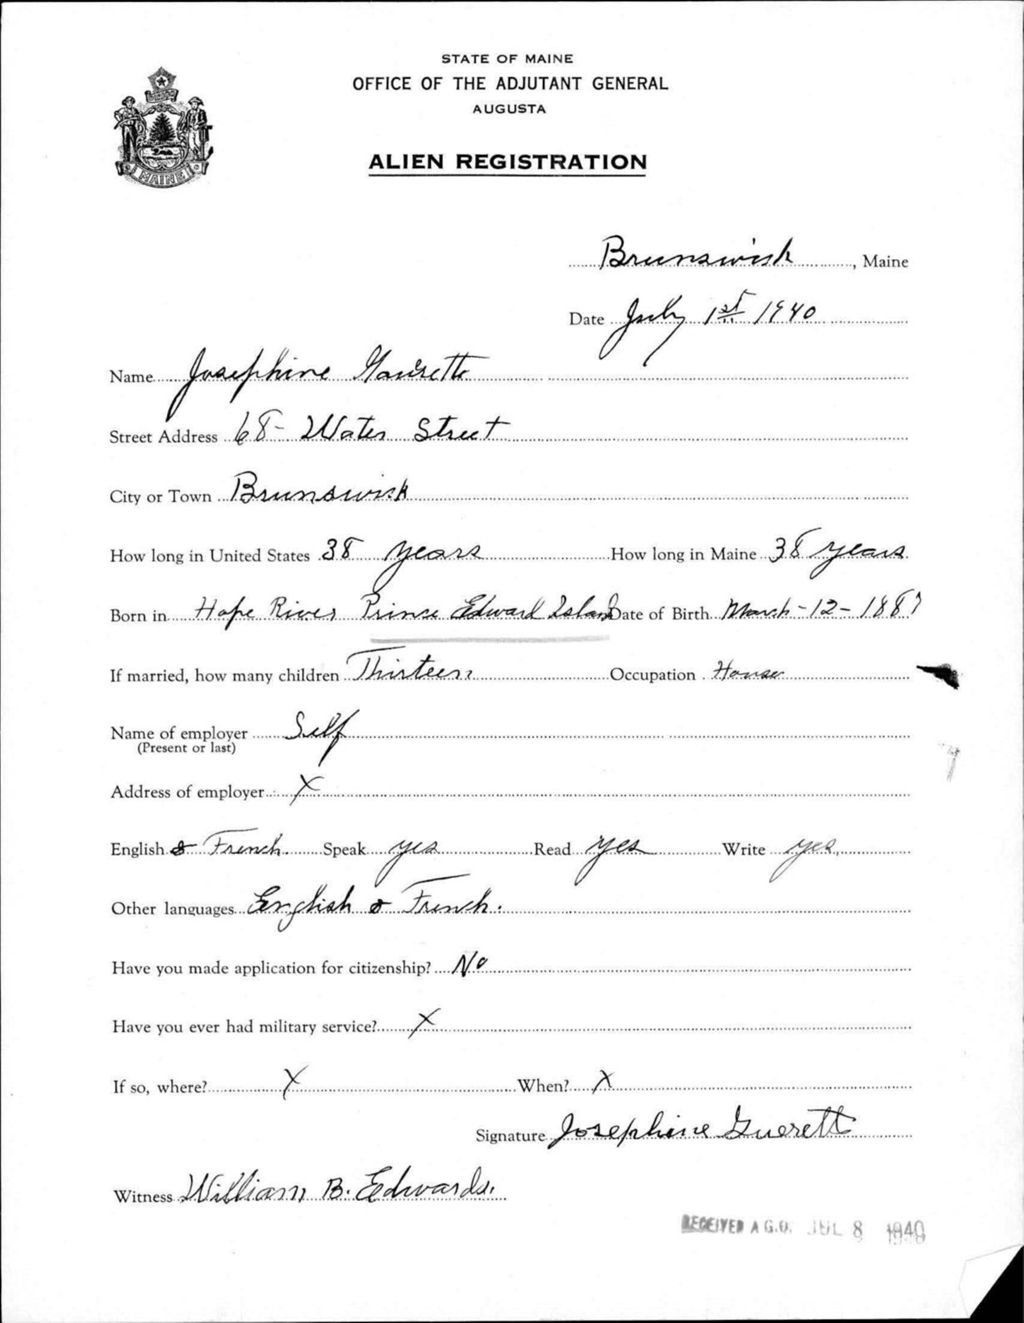 STATE OF MAINE
OFFICE OF THE ADJUTANT GENERAL
AUGUSTA
MAINE
ALIEN REGISTRATION
Brunswick, Maine
Date July 1st 1940
Name Josephine
Street Address 68 - Water Street
City or Town Brunswick
How long in United States 38 years How long in Maine 38 years
Born in Hope River Prince Edward Island Date of Birth March - 12 - 1887
If married, how many children Thirteen Occupation House
Name of employer Self
(Present or last)
Address of employer X
English & French Speak yes Read yes Write yes
Other languages English & French.
Have you made application for citizenship? No
Have you ever had military service? X
If so, where? X When? X
Signature Josephine Guerett
Witness William B. Edwards.
RECEIVED A.G.O. JUL 8 1940